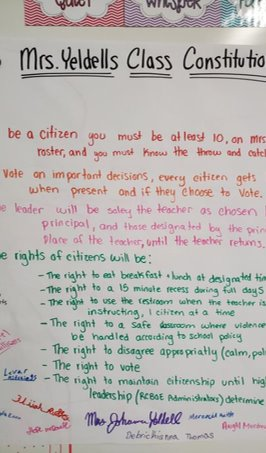 Quiet
Whisper
Mrs. Yeldells Class Constitutio
be a citizen you must be at least 10, on Mrs.
roster, and you must know the throw and catch
Vote on important decisions, every citizen gets
when present and if they choose to vote.
e leader will be soley the teacher as chosen
principal, and those designated by the prin
place of the teacher, until the teacher returns.
e rights of citizens will be:
- The right to eat breakfast + lunch at designated tim
- The right to a 15 minute recess during full days
- The right to use the restroom when the teacher is
instructing, 1 citizen at a time
- The right to a safe classroom where violence
be handled according to school policy
- The right to disagree appropriatly (calm, pol
- The right to vote
- The right to maintain citizenship until hig
leadership (RCBOE Administrators) determine
Mrs. Johana Yeldell
Debrichianna Thomas